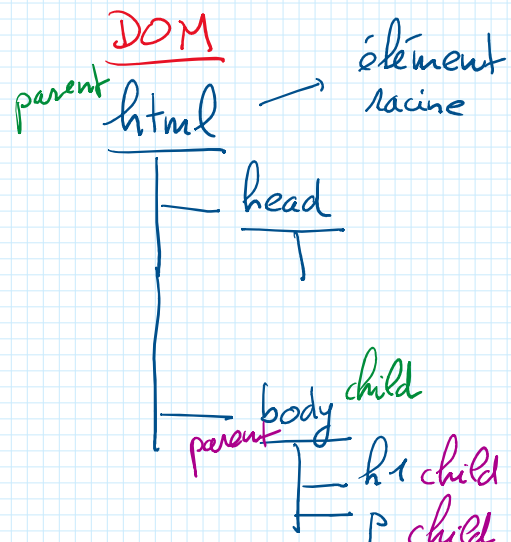 DOM
parent
html
élément
racine
head
child
body
parent
h1 child
p child